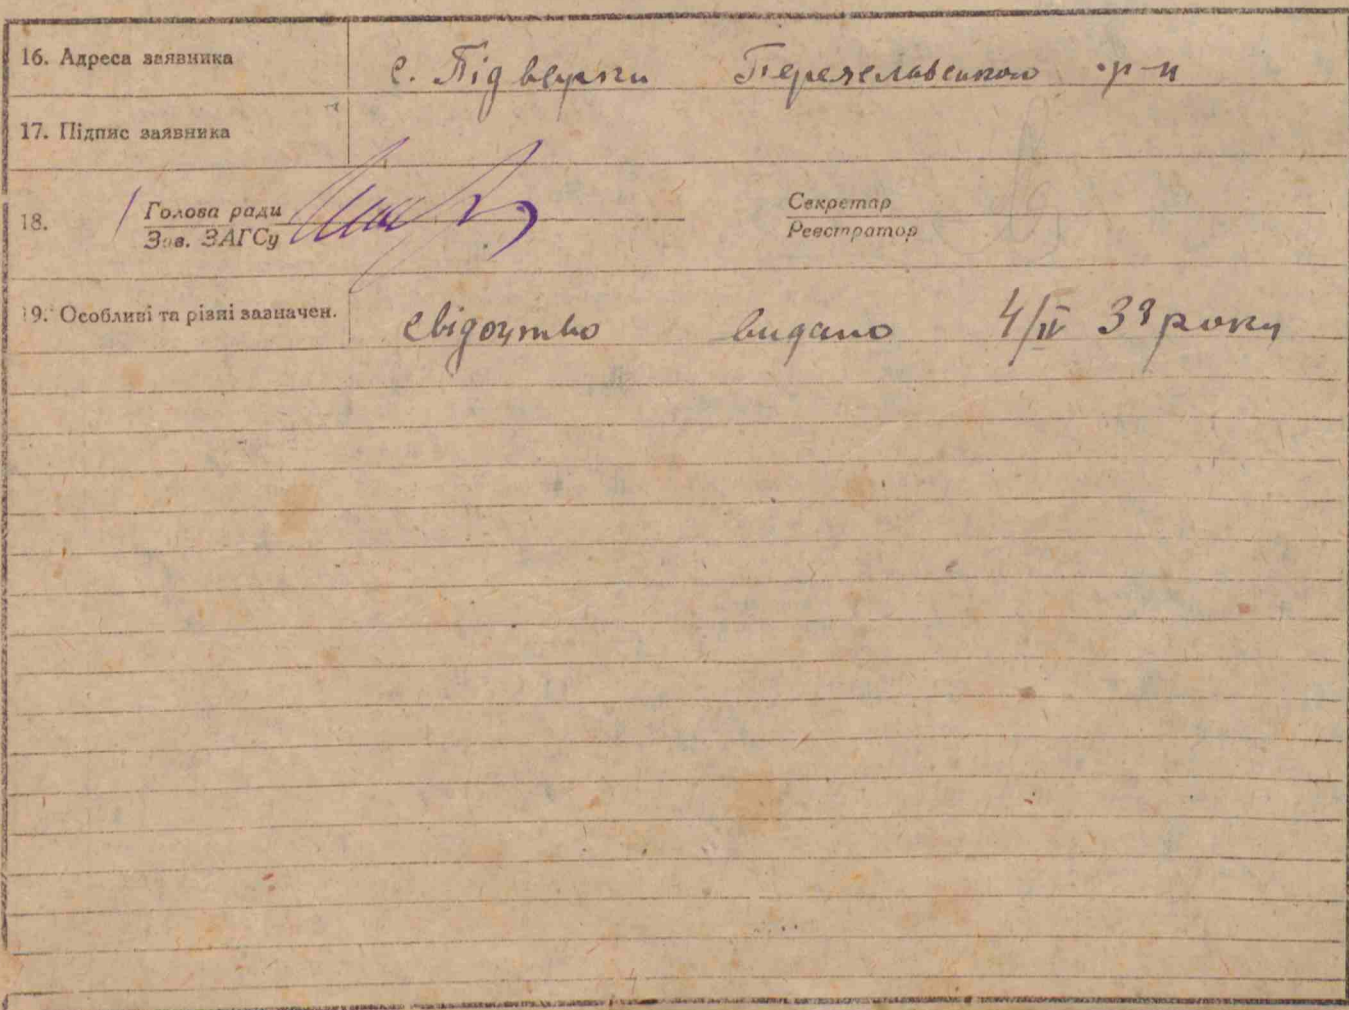 16. Адреса заявника с. Підварки Переяславського р-н
17. Підпис заявника
18. Голова ради Секретар
Зав. ЗАГСу Реєстратор
19. Особливі та різні зазначен. свідоцтво видано 4/IV 38 року